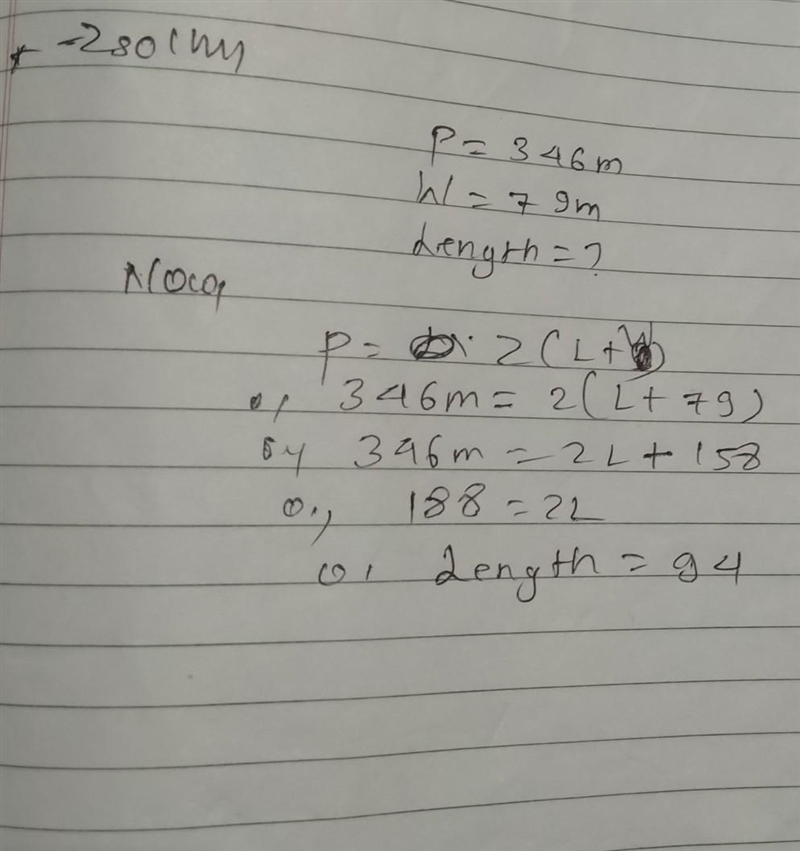 P = 346m
W = 79m
Length = ?
P = 2(L+W)
or, 346m = 2(L+79)
or, 346m = 2L + 158
or, 188 = 2L
or, Length = 94